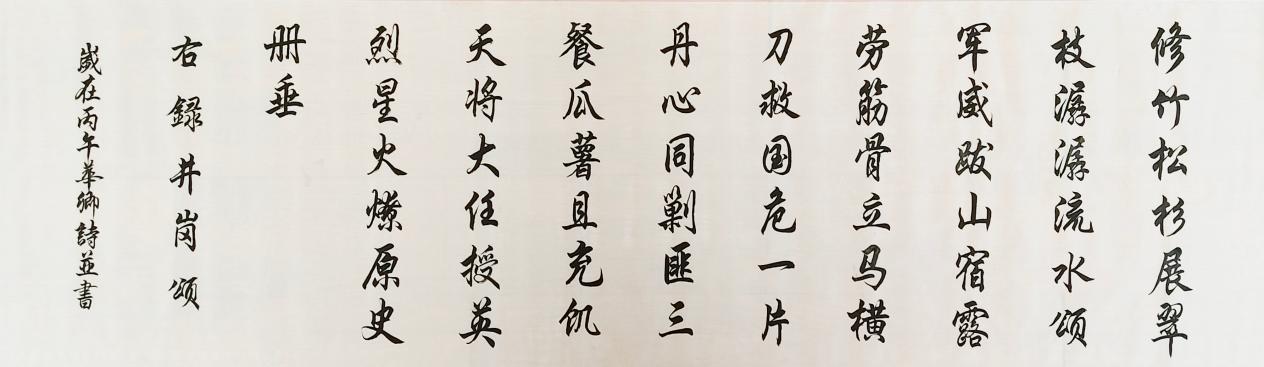 修竹松杉展翠
枝潺潺流水颂
军威跋山宿露
劳筋骨立马横
刀救国危一片
丹心同剿匪三
餐瓜薯且充饥
天将大任授英
烈星火燎原史
册垂
右録井岗颂
嵗在丙午華卿詩並書